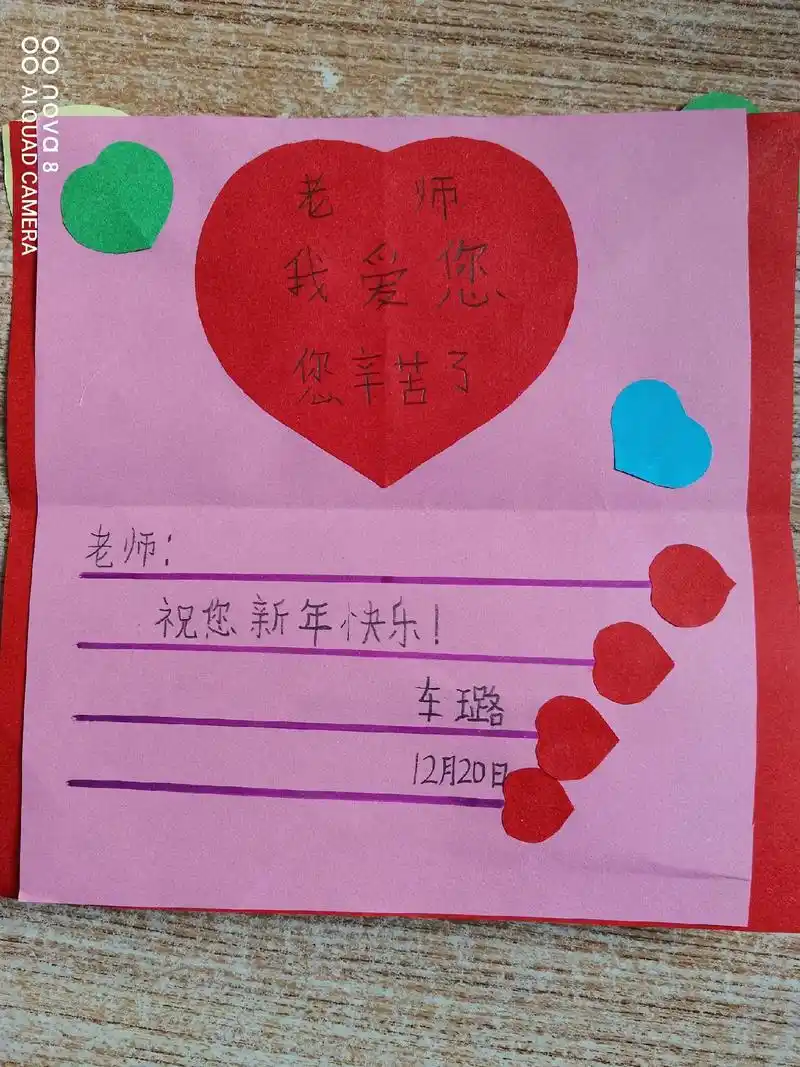 老师
我爱您
您辛苦了
老师:
祝您新年快乐!
车璐
12月20日
nova 8
AI QUAD CAMERA